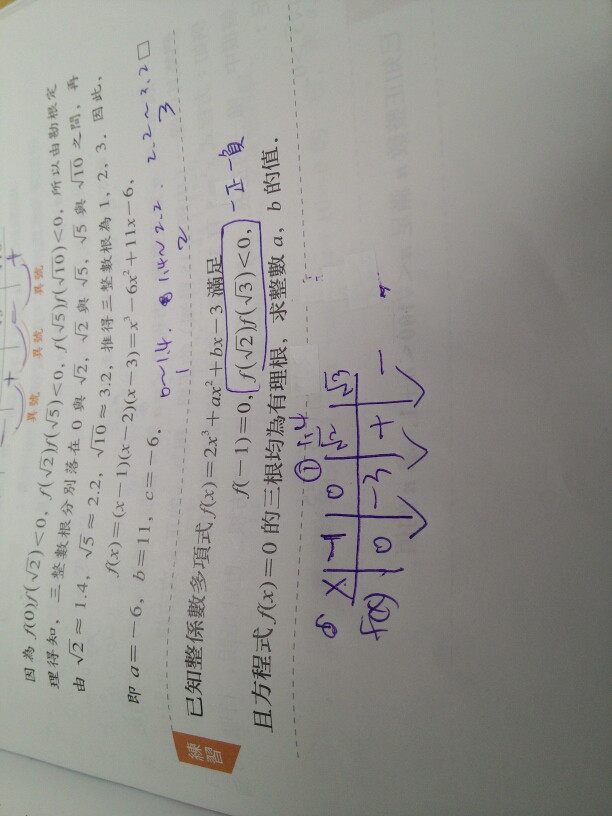 異號 異號 異號
因為 f(0)f(√2)<0，f(√2)f(√5)<0，f(√5)f(√10)<0，所以由勘根定
理得知，三整數根分別落在 0 與 √2，√2 與 √5，√5 與 √10 之間，再
由 √2≈1.4，√5≈2.2，√10≈3.2，推得三整數根為 1，2，3．因此，
f(x)=(x−1)(x−2)(x−3)=x³−6x²+11x−6，
即 a=−6，b=11，c=−6．
0~1.4. 1.4~2.2. 2.2~3.2 □
1 2 3
練習
已知整係數多項式 f(x)=2x³+ax²+bx−3 滿足
f(−1)=0，f(√2)f(√3)<0，一正一負
且方程式 f(x)=0 的三根均為有理根，求整數 a，b 的值．
① 1.4
x −1 0 √2 √3
f(x) 0 −3 + −